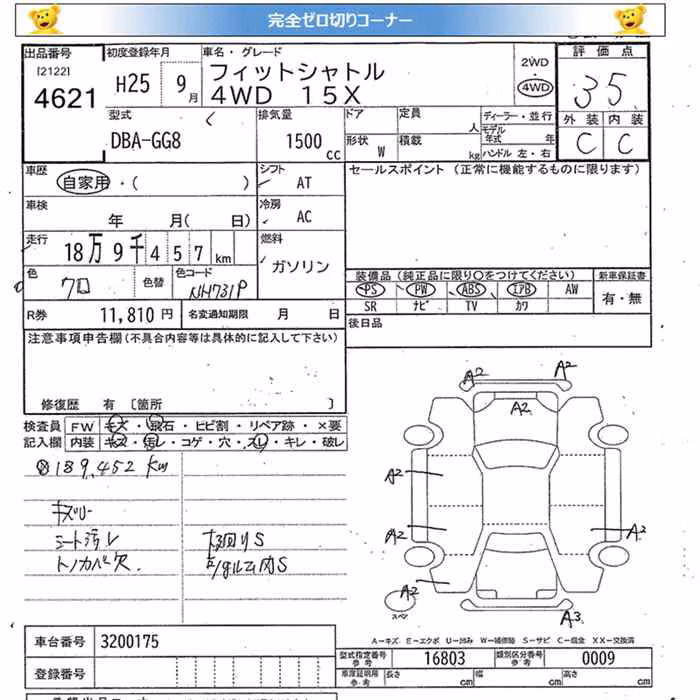 完全ゼロ切りコーナー
出品番号 初度登録年月 車名・グレード 評価点
[2122] フィットシャトル 2WD
4621 H25 9月 4WD 15X 4WD 35
型式 排気量 ドア 定員 ディーラー・並行 外装 内装
人 モデル年式 年
DBA-GG8 1500cc 形状 W 積載 kg ハンドル 左・右 C C
車歴 シフト セールスポイント (正常に機能するものに限ります)
自家用・( ) AT
車検 冷房
年 月( 日) AC
走行 燃料
18万9千457km ガソリン
色 色替 色コード 装備品(純正品に限り〇をつけてください) 新車保証書
クロ NH731P PS PW ABS エアB AW 有・無
SR ナビ TV カワ
R券 11,810円 名変通知期限 月 日 後日品
注意事項申告欄(不具合内容等は具体的に記入して下さい)
修復歴 有 [箇所 ]
検査員 FW キズ・飛石・ヒビ割・リペア跡・×要
記入欄 内装 キズ・汚レ・コゲ・穴・スレ・キレ・破レ
189,452 km
キズリー
シート汚レ 下回りS
トノカバー欠 E/gルーム内S
A2 A2
A2
A2
A2 A2
A2
スペア A3
A-キズ E-エクボ U-凹み W-補修跡 S-サビ C-腐食 XX-交換済
車台番号 3200175
型式指定番号 参考 16803 類別区分番号 参考 0009
登録番号 車庫証明用 参考 長さ cm 幅 cm 高さ cm